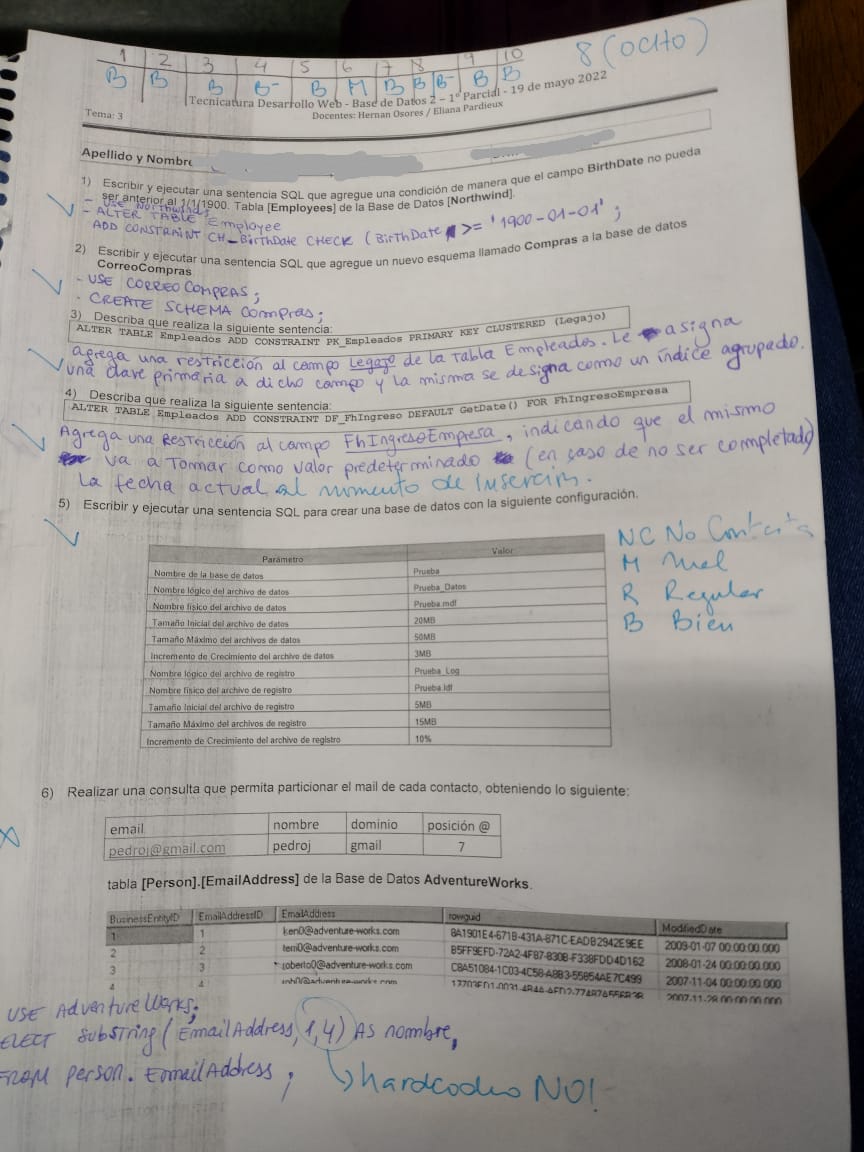 1 2 3 4 5 6 7 8 9 10
B B B B- B M B B B- B B
8 (OCHO)
Tecnicatura Desarrollo Web - Base de Datos 2 – 1° Parcial - 19 de mayo 2022
Tema: 3
Docentes: Hernan Osores / Eliana Pardieux
Apellido y Nombre
1) Escribir y ejecutar una sentencia SQL que agregue una condición de manera que el campo BirthDate no pueda
ser anterior al 1/1/1900. Tabla [Employees] de la Base de Datos [Northwind].
- USE Northwind;
- ALTER TABLE Employee
ADD CONSTRAINT CH_BirthDate CHECK (BirThDate >= '1900-01-01' ;
2) Escribir y ejecutar una sentencia SQL que agregue un nuevo esquema llamado Compras a la base de datos
CorreoCompras
- USE CORREO COMPRAS;
- CREATE SCHEMA Compras;
3) Describa que realiza la siguiente sentencia:
ALTER TABLE Empleados ADD CONSTRAINT PK_Empleados PRIMARY KEY CLUSTERED (Legajo)
agrega una restricción al campo Legajo de la Tabla Empleados. Le asigna
una clave primaria a dicho campo y la misma se designa como un índice agrupado.
4) Describa que realiza la siguiente sentencia:
ALTER TABLE Empleados ADD CONSTRAINT DF_FhIngreso DEFAULT GetDate() FOR FhIngresoEmpresa
Agrega una Restricción al campo FhIngresoEmpresa, indicando que el mismo
va a Tomar como valor predeterminado (en caso de no ser completado)
La fecha actual al momento de Inserción.
5) Escribir y ejecutar una sentencia SQL para crear una base de datos con la siguiente configuración.
NC No Contesta
M Mal
R Regular
B Bien
Parámetro Valor
Nombre de la base de datos Prueba
Nombre lógico del archivo de datos Prueba_Datos
Nombre físico del archivo de datos Prueba.mdf
Tamaño Inicial del archivo de datos 20MB
Tamaño Máximo del archivos de datos 50MB
Incremento de Crecimiento del archivo de datos 3MB
Nombre lógico del archivo de registro Prueba_Log
Nombre físico del archivo de registro Prueba.ldf
Tamaño Inicial del archivo de registro 5MB
Tamaño Máximo del archivos de registro 15MB
Incremento de Crecimiento del archivo de registro 10%
6) Realizar una consulta que permita particionar el mail de cada contacto, obteniendo lo siguiente:
email nombre dominio posición @
pedroj@gmail.com pedroj gmail 7
tabla [Person].[EmailAddress] de la Base de Datos AdventureWorks.
BusinessEntityID EmailAddressID EmailAddress rowguid ModifiedDate
1 1 ken0@adventure-works.com 8A1901E4-671B-431A-871C-EADB2942E9EE 2009-01-07 00:00:00.000
2 2 terri0@adventure-works.com B5FF9EFD-72A2-4F87-830B-F338FDD4D162 2008-01-24 00:00:00.000
3 3 roberto0@adventure-works.com C8A51084-1C03-4C58-A8B3-55854AE7C499 2007-11-04 00:00:00.000
4 4 rob0@adventure-works.com 2007-11-28 00:00:00.000
USE AdventureWorks;
ELECT SubSTring(EmailAddress, 1,4) AS nombre,
FROM person.EmailAddress;
hardcodeo NO!